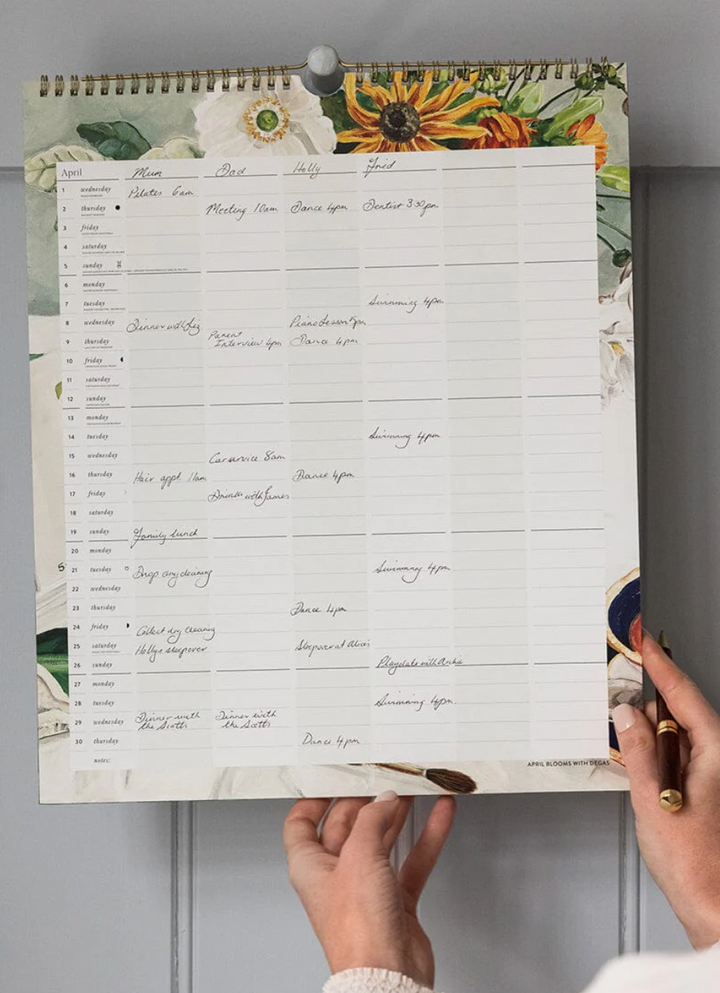 April Mum Dad Holly Fred
1 wednesday Pilates 6am
2 thursday Meeting 10am Dance 4pm Dentist 3 30pm
3 friday
4 saturday
5 sunday
6 monday
7 tuesday Swimming 4pm
8 wednesday Dinner with Liz Piano Lesson 5pm
9 thursday Parent Interview 4pm Dance 4pm
10 friday
11 saturday
12 sunday
13 monday
14 tuesday Swimming 4pm
15 wednesday Car service 8am
16 thursday Hair appt. 11am Dance 4pm
17 friday Dinner with James
18 saturday
19 sunday Family lunch
20 monday
21 tuesday Drop dry cleaning Swimming 4pm
22 wednesday
23 thursday Dance 4pm
24 friday Collect dry cleaning
25 saturday Hollys sleepover Sleepover at Alices
26 sunday Playdate with Archie
27 monday
28 tuesday Swimming 4pm.
29 wednesday Dinner with the Scotts Dinner with the Scotts
30 thursday Dance 4pm
notes:
APRIL BLOOMS WITH DEGAS